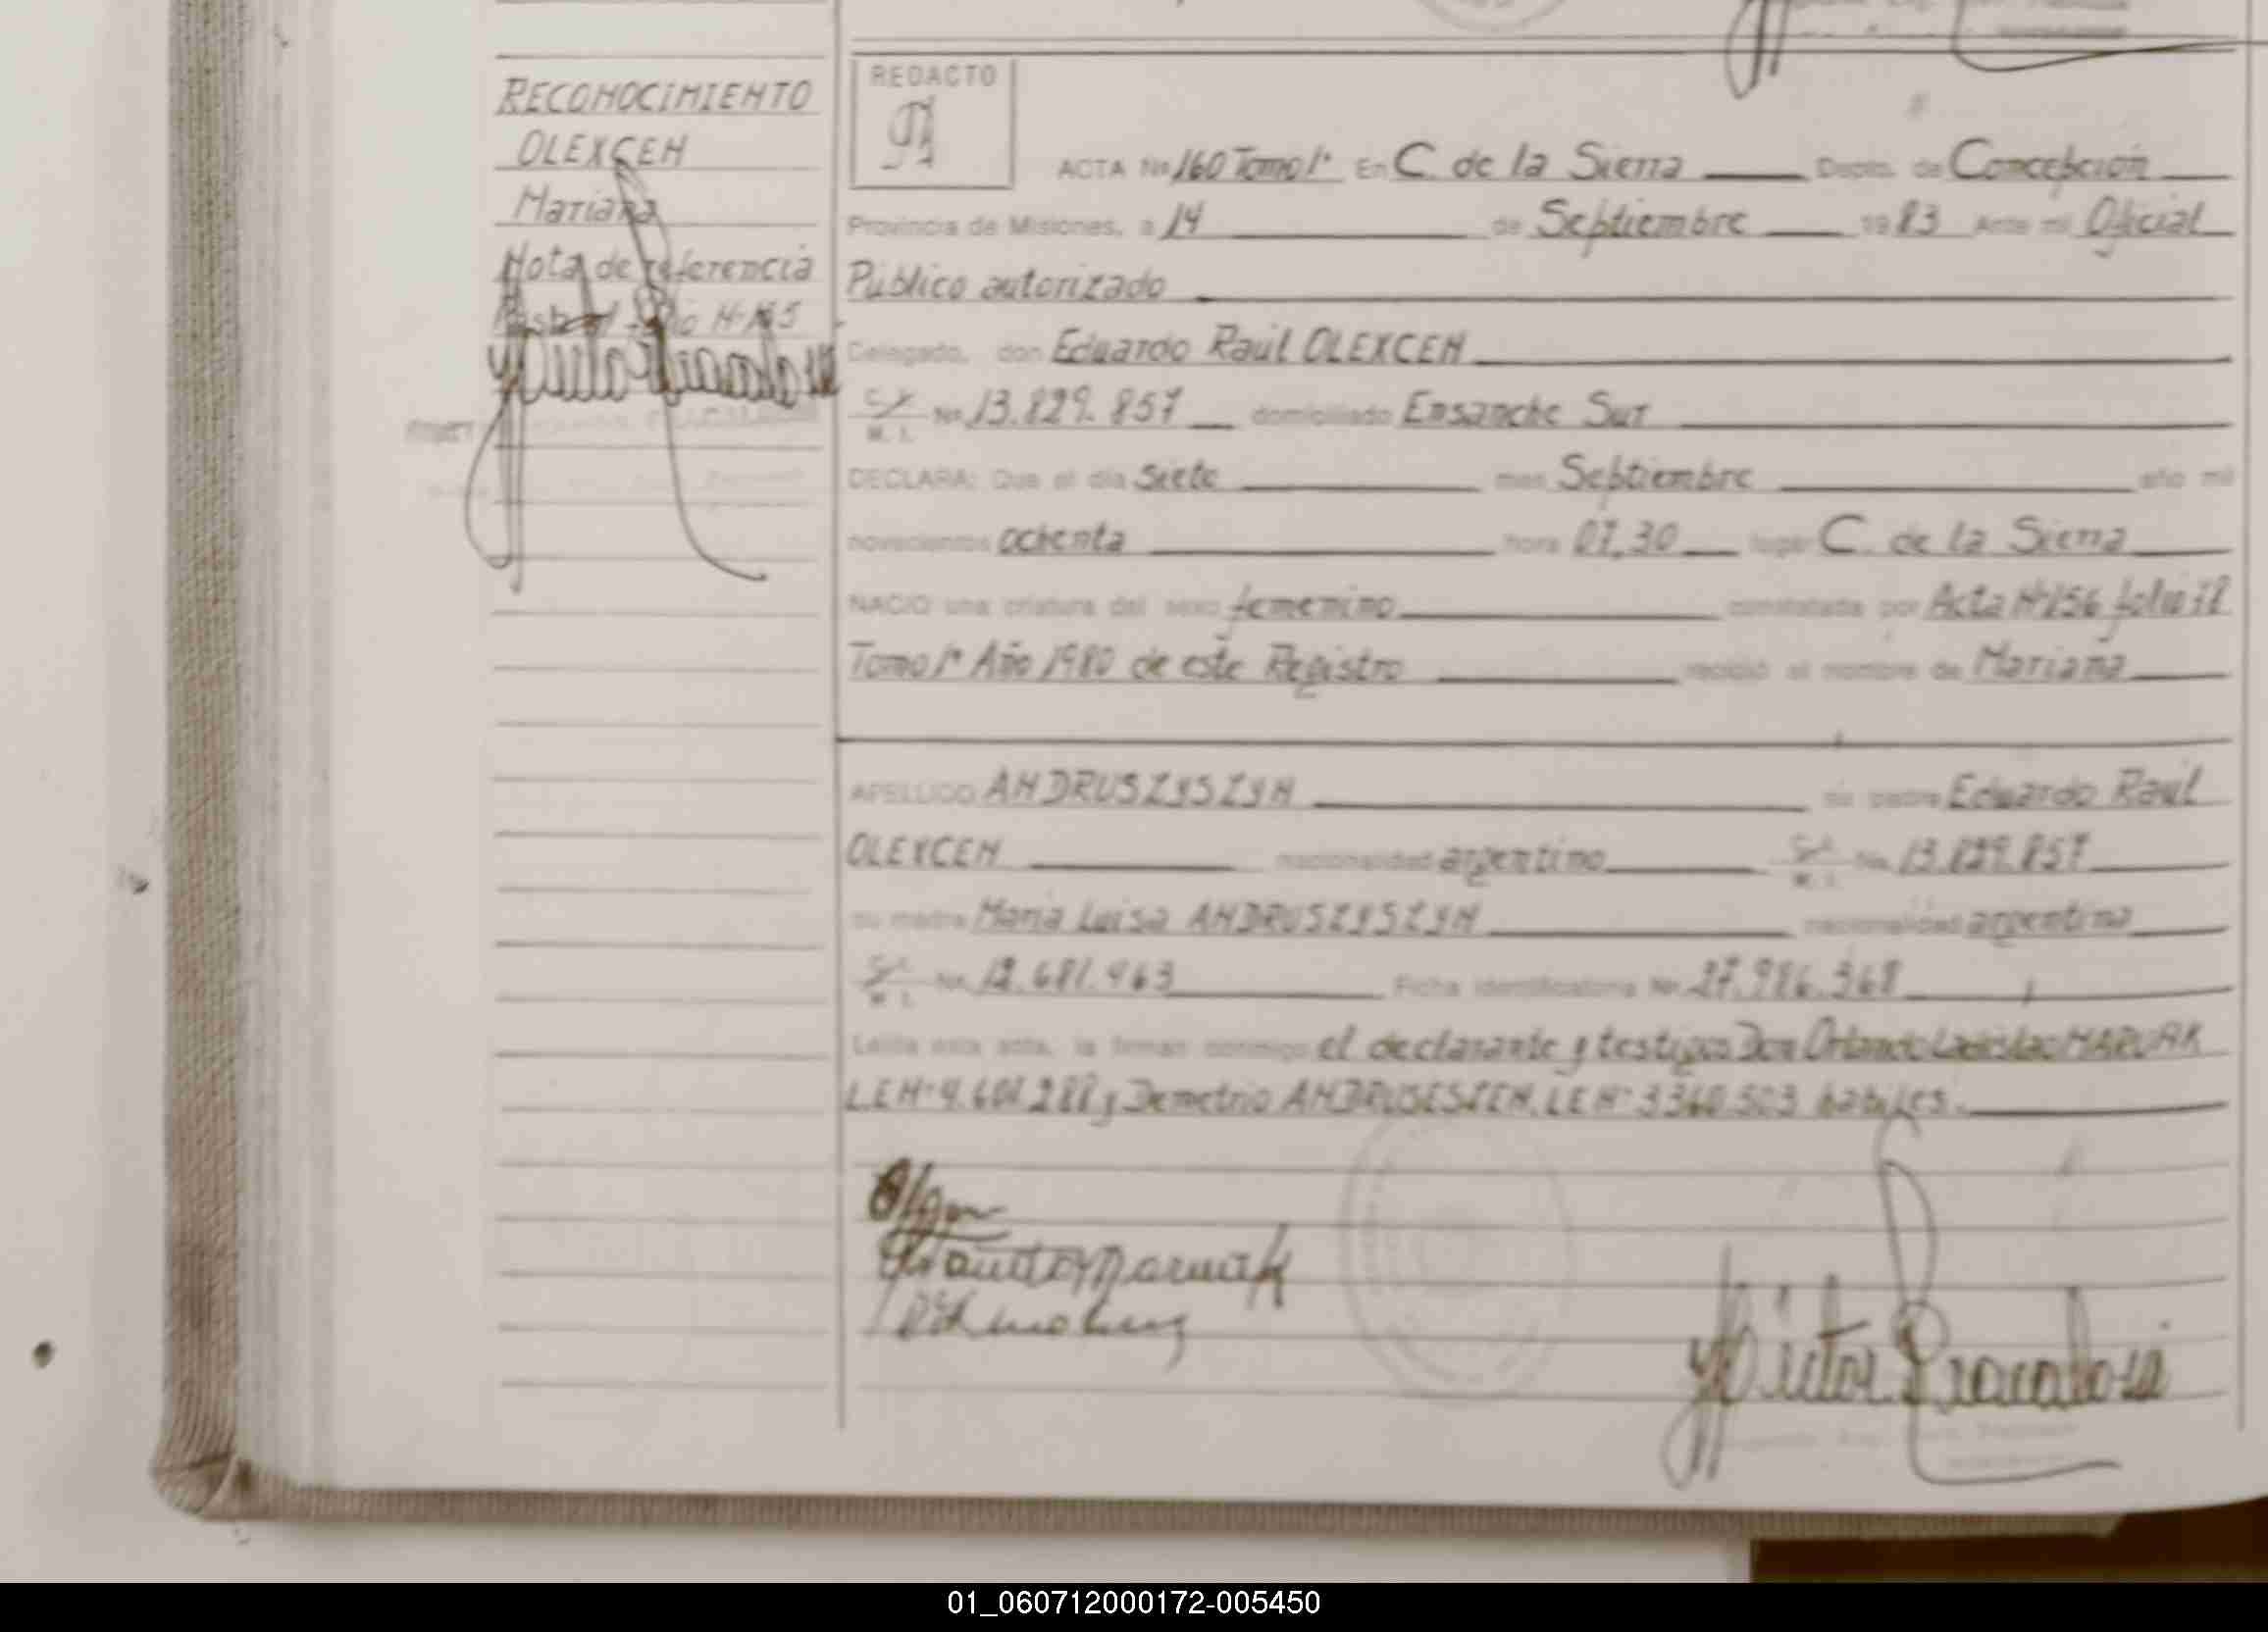 RECONOCIMIENTO
OLEXCEN
Mariana
Nota de referencia
REDACTO
ACTA Nº 160 Tomo 1º En C. de la Sierra Depto. de Concepción
Provincia de Misiones, a 14 de Septiembre 1983 Ante mi Oficial
Público autorizado
Delegado, don Eduardo Raúl OLEXCEN
C. I.
M. I. Nº 13.829.857 domiciliado Ensanche Sur
DECLARA: Que el día siete mes Septiembre año mil
novecientos ochenta hora 07,30 lugar C. de la Sierra
NACIO una criatura del sexo femenino constatada por Acta Nº 156 folio 78
Tomo 1º Año 1980 de este Registro recibió el nombre de Mariana
APELLIDO ANDRUSZYSZYN su padre Eduardo Raúl
OLEXCEN nacionalidad argentino C. I.
M. I. Nº 13.829.857
su madre María Luisa ANDRUSZYSZYN nacionalidad argentina
C. I.
M. I. Nº 12.681.963 Ficha identificatoria Nº 27.986.368
Leída esta acta, la firman conmigo el declarante y testigos Don Orlando Ladislao
LE Nº y Demetrio LE Nº 3360.503 habiles.
01_060712000172-005450